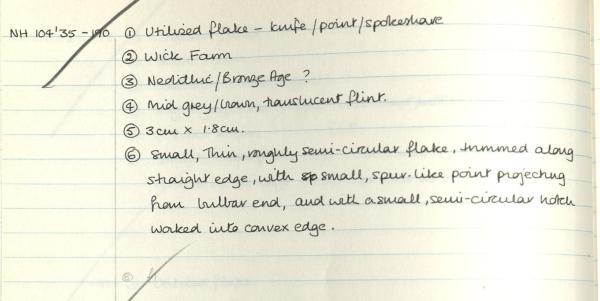 NH 104'35 - 190 ① Utilized flake - knife/point/spokeshave
② Wick Farm
③ Neolithic/Bronze Age ?
④ Mid grey/brown, translucent flint.
⑤ 3cm x 1.8cm.
⑥ Small, Thin, roughly semi-circular flake, trimmed along
straight edge, with small, spur-like point projecting
from bulbar end, and with a small, semi-circular notch
worked into convex edge.